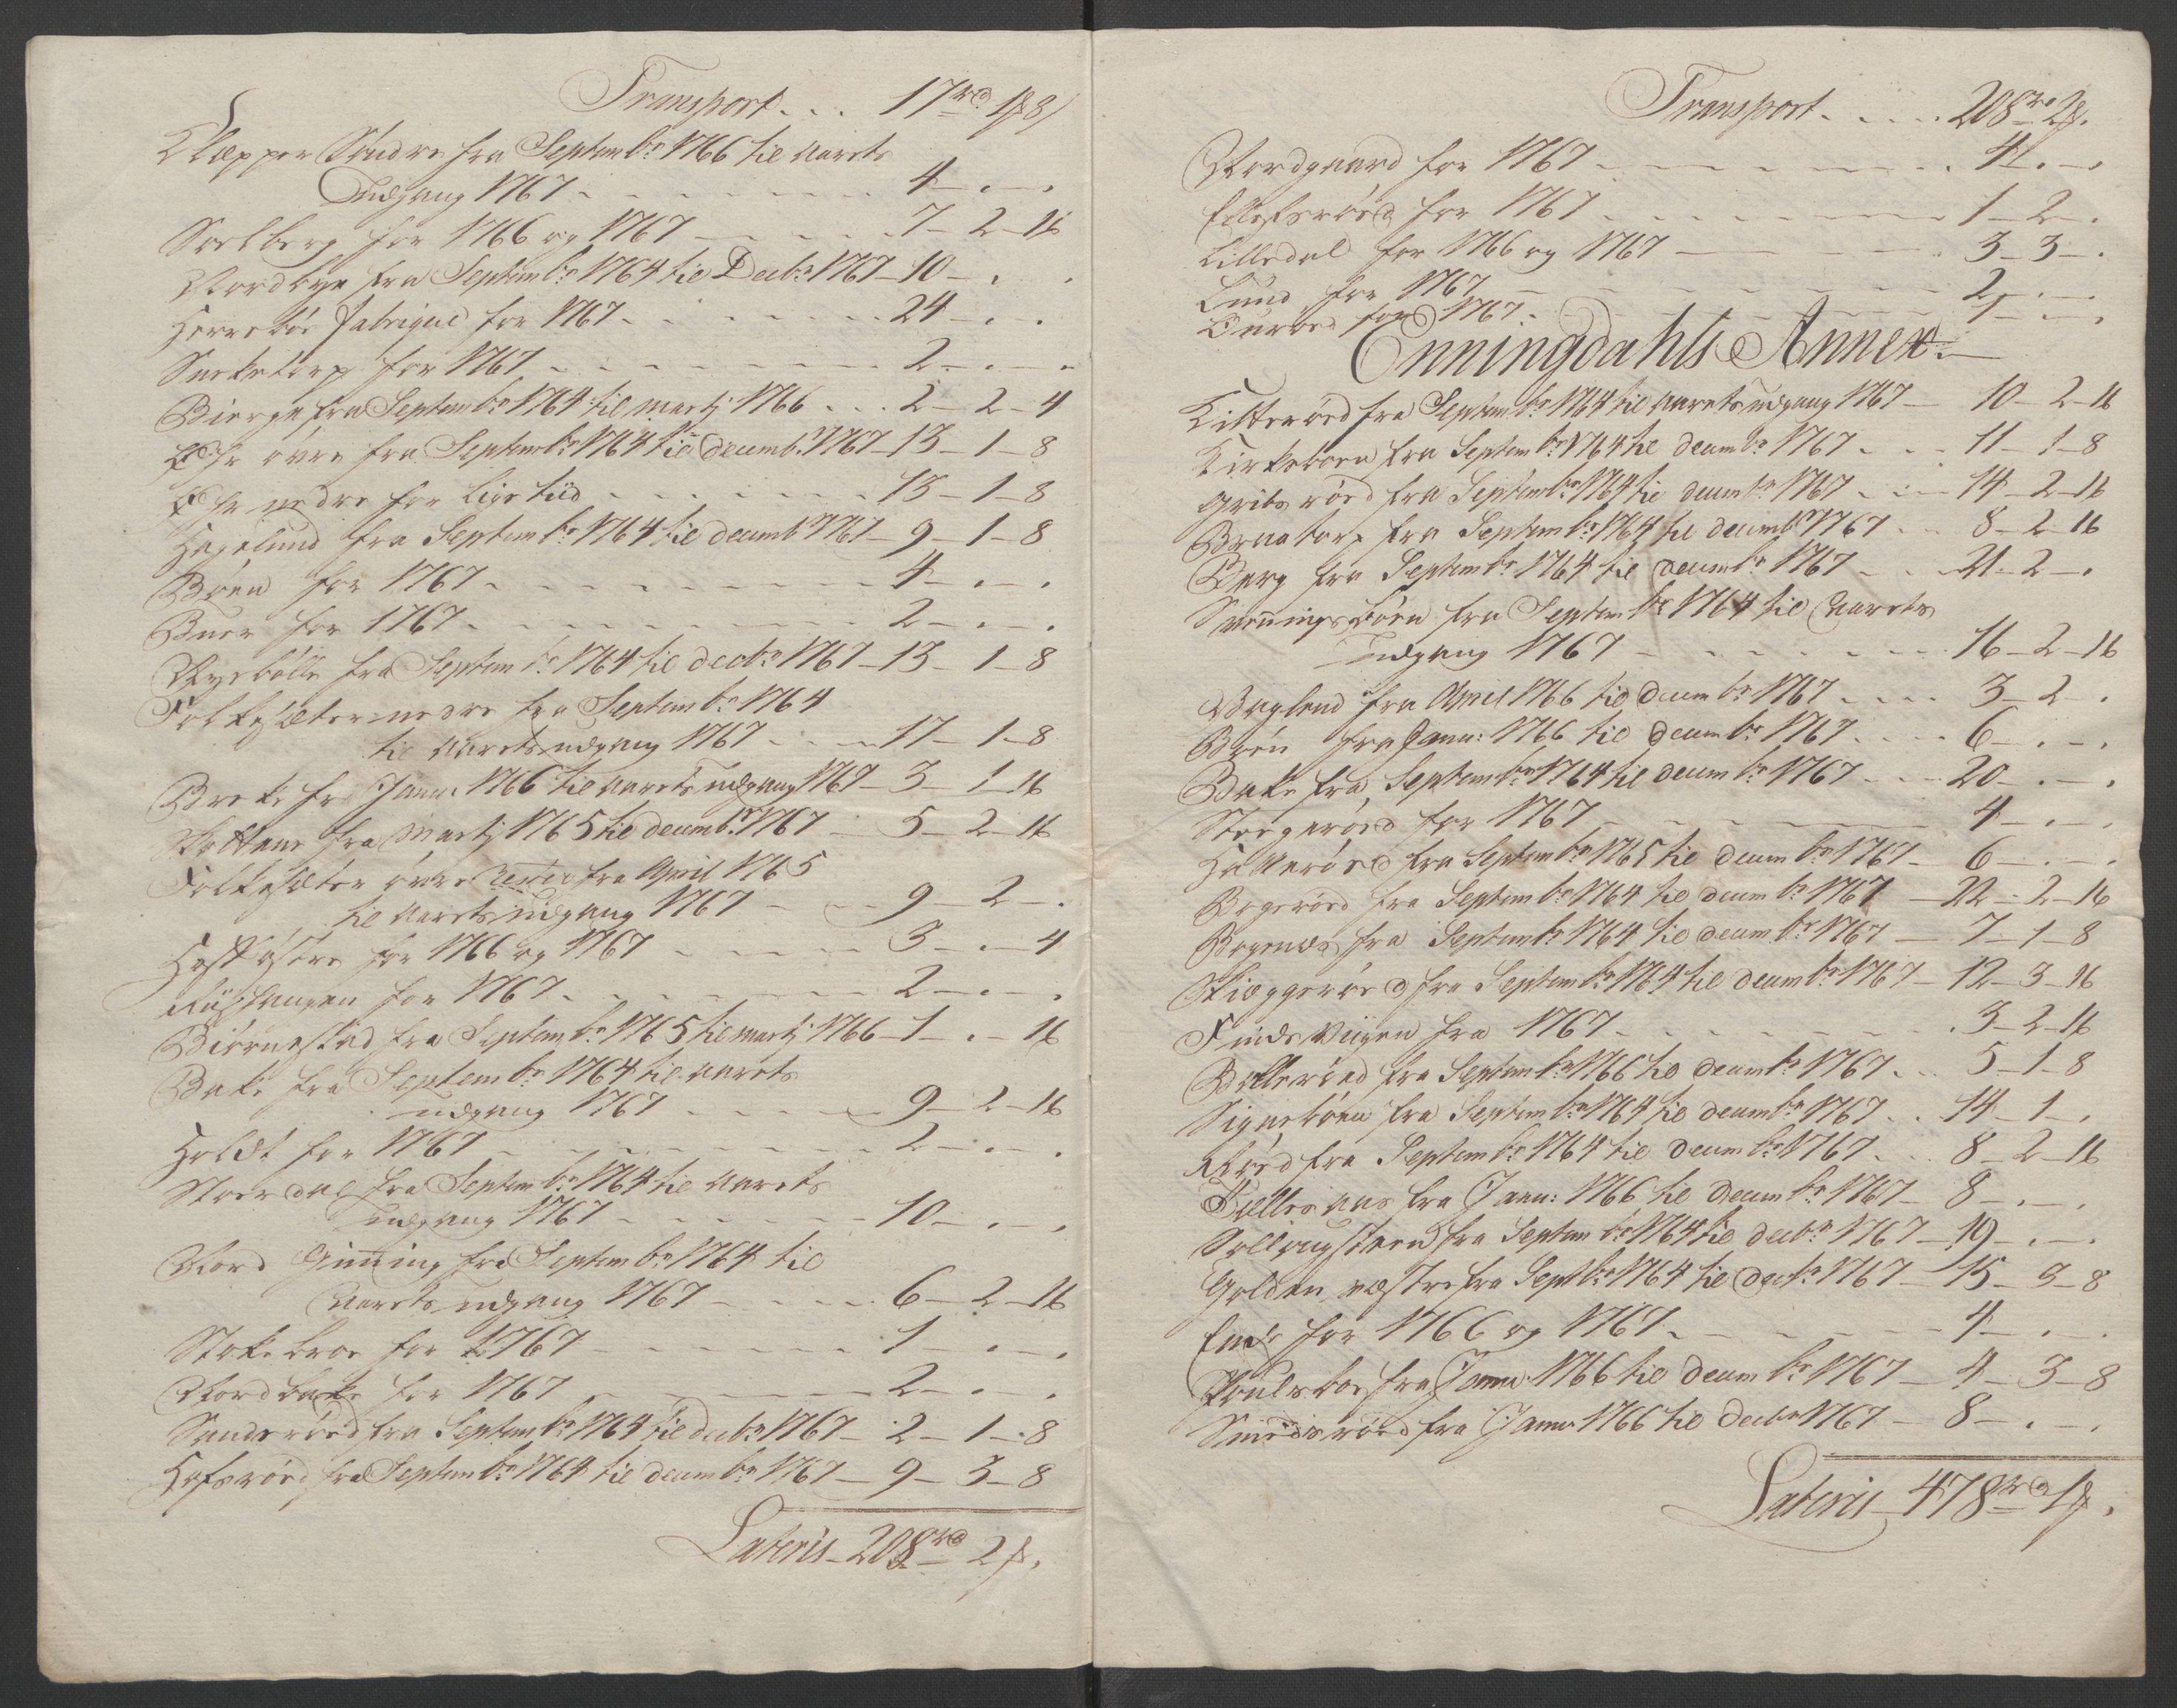 Transport . . . 17 rd 1 8
Klepper Søndre fra Septembr 1766 til aarets
Udgang 1767 - - - 4 - . - .
Soelberg for 1766 og 1767 - - - 7 - 2 - 16
Nordbye fra Septembr 1764 til Decbr 1767 - 10 - . .
Herrebøe Fabrique for 1767 - - - 24 - . .
Sneketorp for 1767 - - - 2 - . - .
Bierge fra Septembr 1764 til Martj 1766 . . . 2 - 2 - 4
øvre fra Septembr 1764 til Decembr 1767 - 13 - 1 - 8
nedre for lige tiid - - - 13 - 1 - 8
Hagelund fra Septembr 1764 til Decembr 1767 - 9 - 1 - 8
Bøen for 1767 - - - 4 - . - .
Buer for 1767 - - - 2 - . - .
fra Septembr 1764 til Decbr 1767 - 13 - 1 - 8
Folkesæter nedre fra Septembr 1764
til aarets udgang 1767 - - - 17 - 1 - 8
Breke fra Janu: 1766 til aarets udgang 1767 - 3 - 1 - 16
fra Martj 1765 til Decembr 1767 - 5 - 2 - 16
Folkesæter øvre fra April 1765
til aarets udgang 1767 - - - 9 - 2 - .
for 1766 og 1767 - - - 3 - . - 4
for 1767 - - - 2 - . - .
Biørnestad fra Septembr 1765 til Martj 1766 - 1 - . - 16
Bake fra Septembr 1764 til aarets
udgang 1767 - - - 9 - 2 - 16
Holdt for 1767 - - - 2 - . - .
Stoerdal fra Septembr 1764 til aarets
Udgang 1767 - - - 10 - . - .
Nord Ginning fra Septembr 1764 til
Aarets udgang 1767 - - - 6 - 2 - 16
Stokebroe for 1767 - - - 1 - . - .
Nordbake for 1767 - - - 2 - . - .
Sandsrøed fra Septembr 1764 til Decbr 1767 - 2 - 1 - 8
Hofsrød fra Septembr 1764 til Decembr 1767 - 9 - 3 - 8
Lateris - 208 rd 2
Transport . . . . 208 rd 2
Nordgaard for 1767 - - - 4 . - .
Ellefsrøed for 1767 - - - 1 - 2 - .
Lilledal for 1766 og 1767 - - - 3 - 3 - .
Lund for 1767 - - - 2 - . - .
for 1767 - - - 1 - . - .
Enningdahls Annex.
Kitterød fra Septembr 1764 til aarets udgang 1767 - 10 - 2 - 16
Kirkeboen fra Septembr 1764 til Decembr 1767 - - - 11 - 1 - 8
Gribsrøed fra Septembr 1764 til Decembr 1767 - - - 14 - 2 - 16
Braatorp fra Septembr 1764 til Decembr 1767 - - 8 - 2 - 16
Berg fra Septembr 1764 til Decembr 1767 - - - 21 - 2 - .
Svenningsbøen fra Septembr 1764 til Aarets
Udgang 1767 - - - 16 - 2 - 16
fra April 1766 til Decembr 1767 - - - 3 - 2 - .
Bøen fra Janu: 1766 til Decembr 1767 - - - 6 - . - .
Bake fra Septembr 1764 til Decembr 1767 - - - 20 - . - .
for 1767 - - - 4 - . - .
fra Septembr 1765 til Decembr 1767 - 6 - . - .
Bogerød fra Septembr 1764 til Decembr 1767 - 22 - 2 - 16
Bogenæs fra Septembr 1764 til Decembr 1767 - 7 - 1 - 8
Skieggerøed fra Septembr 1764 til Decembr 1767 - 12 - 3 - 16
Findsviigen fra 1767 - - - 3 - 2 - 16
Bellerød fra Septembr 1766 til Decembr 1767 - - 5 - 1 - 8
Signebøen fra Septembr 1764 til Decembr 1767 - - 14 - 1 - .
Røed fra Septembr 1764 til Decembr 1767 - - 8 - 2 - 16
fra Janu: 1766 til Decembr 1767 - 8 - . - .
fra Septembr 1764 til Decbr 1767 - 19 - . - .
Holden vestre fra Septbr 1764 til Decbr 1767 - 15 - 3 - 8
for 1766 og 1767 - - - 4 - . - .
fra Janu: 1766 til Decembr 1767 - 4 - 3 - 8
fra Janu: 1766 til Decbr 1767 - 8 - . - .
Lateris - 478 rd 1